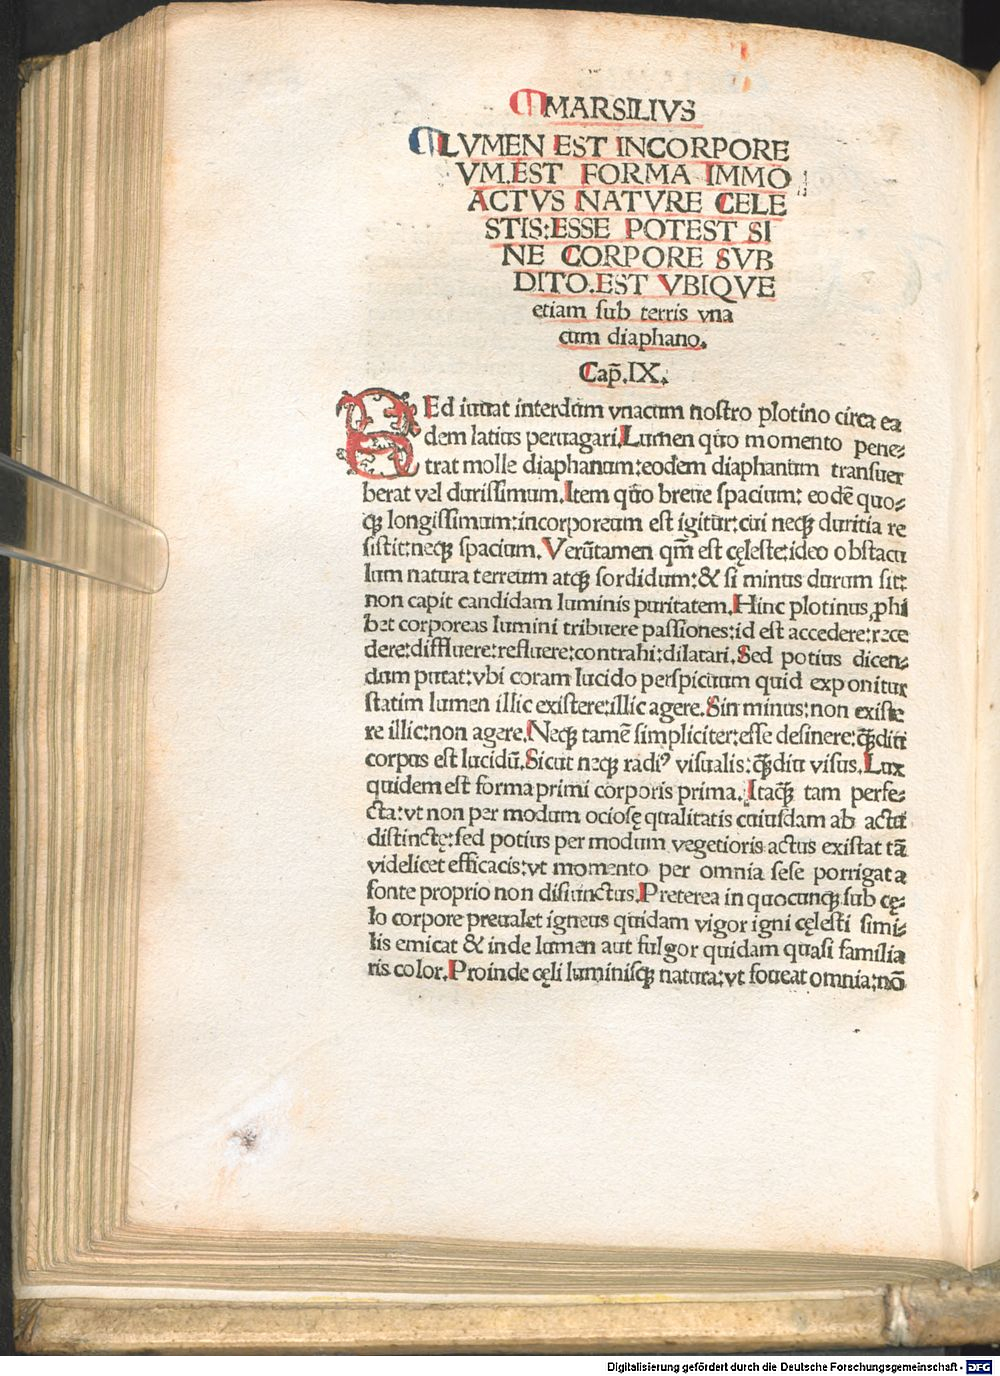 MARSILIVS
LVMEN EST INCORPORE
VM.EST FORMA IMMO
ACTVS NATVRE CELE
STIS:ESSE POTEST SI
NE CORPORE SVB
DITO.EST VBIQVE
etiam sub terris vna
cum diaphano.
Cap̄.IX.
SEd iuuat interdum vnacum nostro plotino circa ea
dem latius peruagari.Lumen quo momento pene⸗
trat molle diaphanum:eodem diaphanum transuer
berat vel durissimum.Item quo breue spacium: eodē quo⸗
qꝫ longissimum:incorporeum est igitur:cui neqꝫ duritia re
sistit:neqꝫ spacium.Verūtamen qm̄ est cęleste:ideo obstacu
lum natura terreum atqꝫ sordidum:& si minus durum sit:
non capit candidam luminis puritatem.Hinc plotinus ꝓhi
bet corporeas lumini tribuere passiones:id est accedere:rece
dere:diffluere:refluere:contrahi:dilatari.Sed potius dicen⸗
dum putat:vbi coram lucido perspicuum quid exponitur
statim lumen illic existere:illic agere.Sin minus:non existe
re illic:non agere.Neqꝫ tamē simpliciter:esse desinere:qꝫ̄diu
corpus est lucidū.Sicut neqꝫ radiꝰ visualis:qꝫ̄diu visus.Lux
quidem est forma primi corporis prima.Itaqꝫ tam perfe⸗
cta:vt non per modum ociosę qualitatis cuiusdam ab actu
distinctę:sed potius per modum vegetioris actus existat tā
videlicet efficacis:vt momento per omnia sese porrigat a
fonte proprio non disiunctus.Preterea in quocunqꝫ sub cę⸗
lo corpore preualet igneus quidam vigor igni cęlesti simi⸗
lis emicat & inde lumen aut fulgor quidam quasi familia
ris color.Proinde cęli luminisqꝫ natura:vt foueat omnia:nō
Digitalisierung gefördert durch die Deutsche Forschungsgemeinschaft - DFG